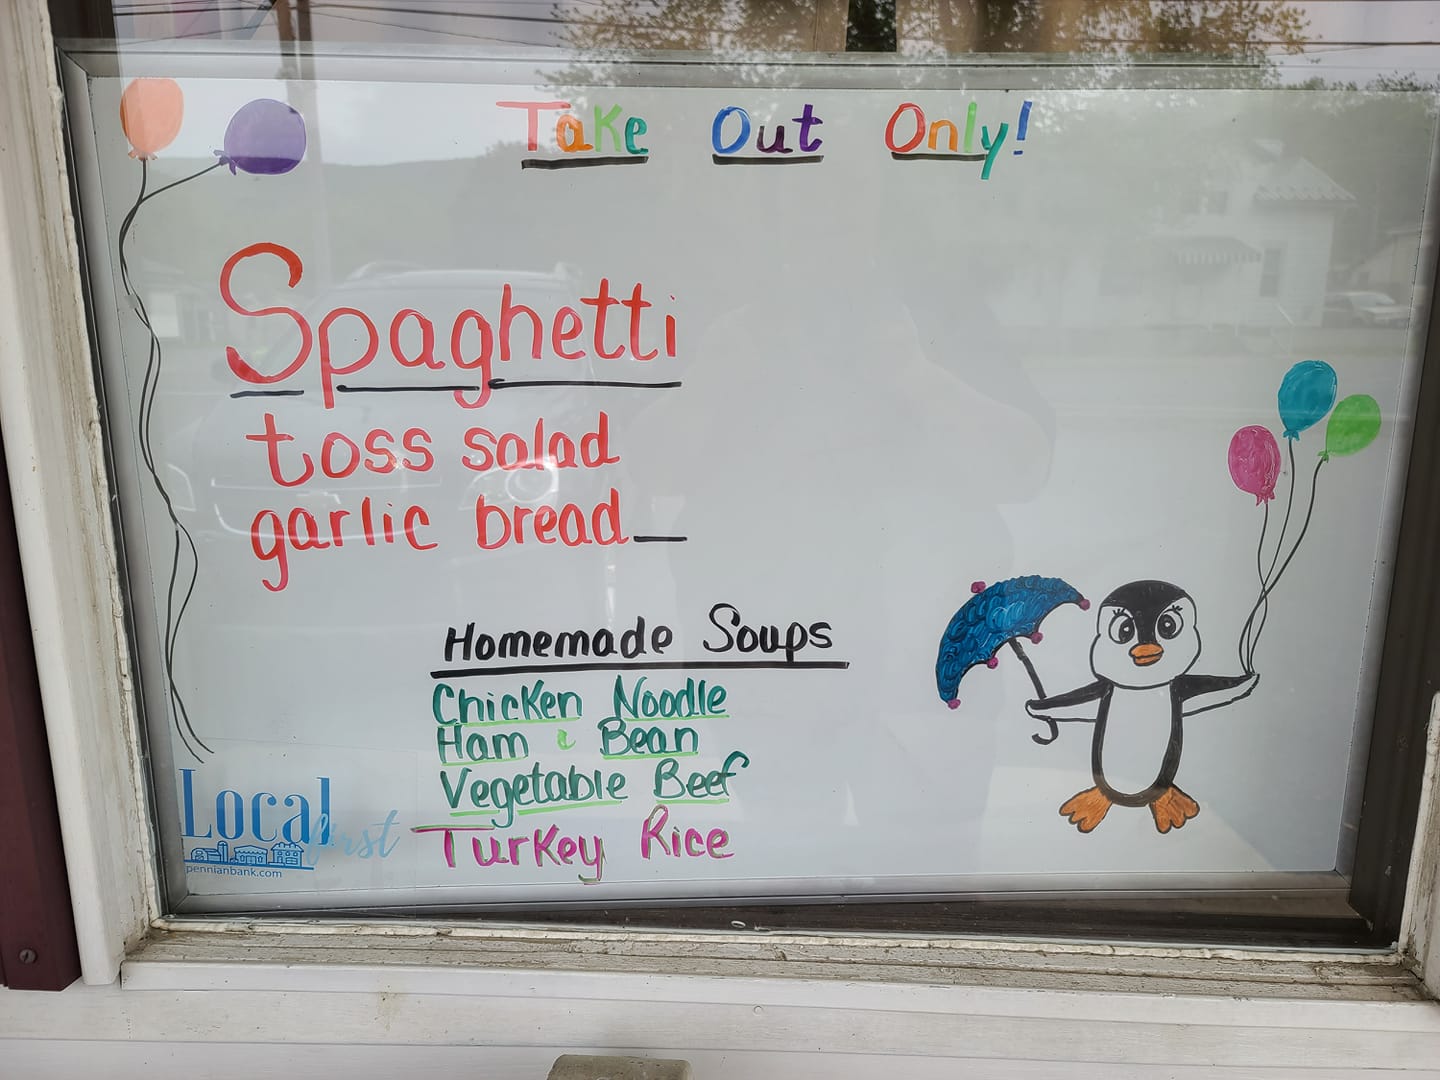 Take Out Only!
Spaghetti
toss salad
garlic bread
Homemade Soups
Chicken Noodle
Ham & Bean
Vegetable Beef
Turkey Rice
Local first
pennianbank.com